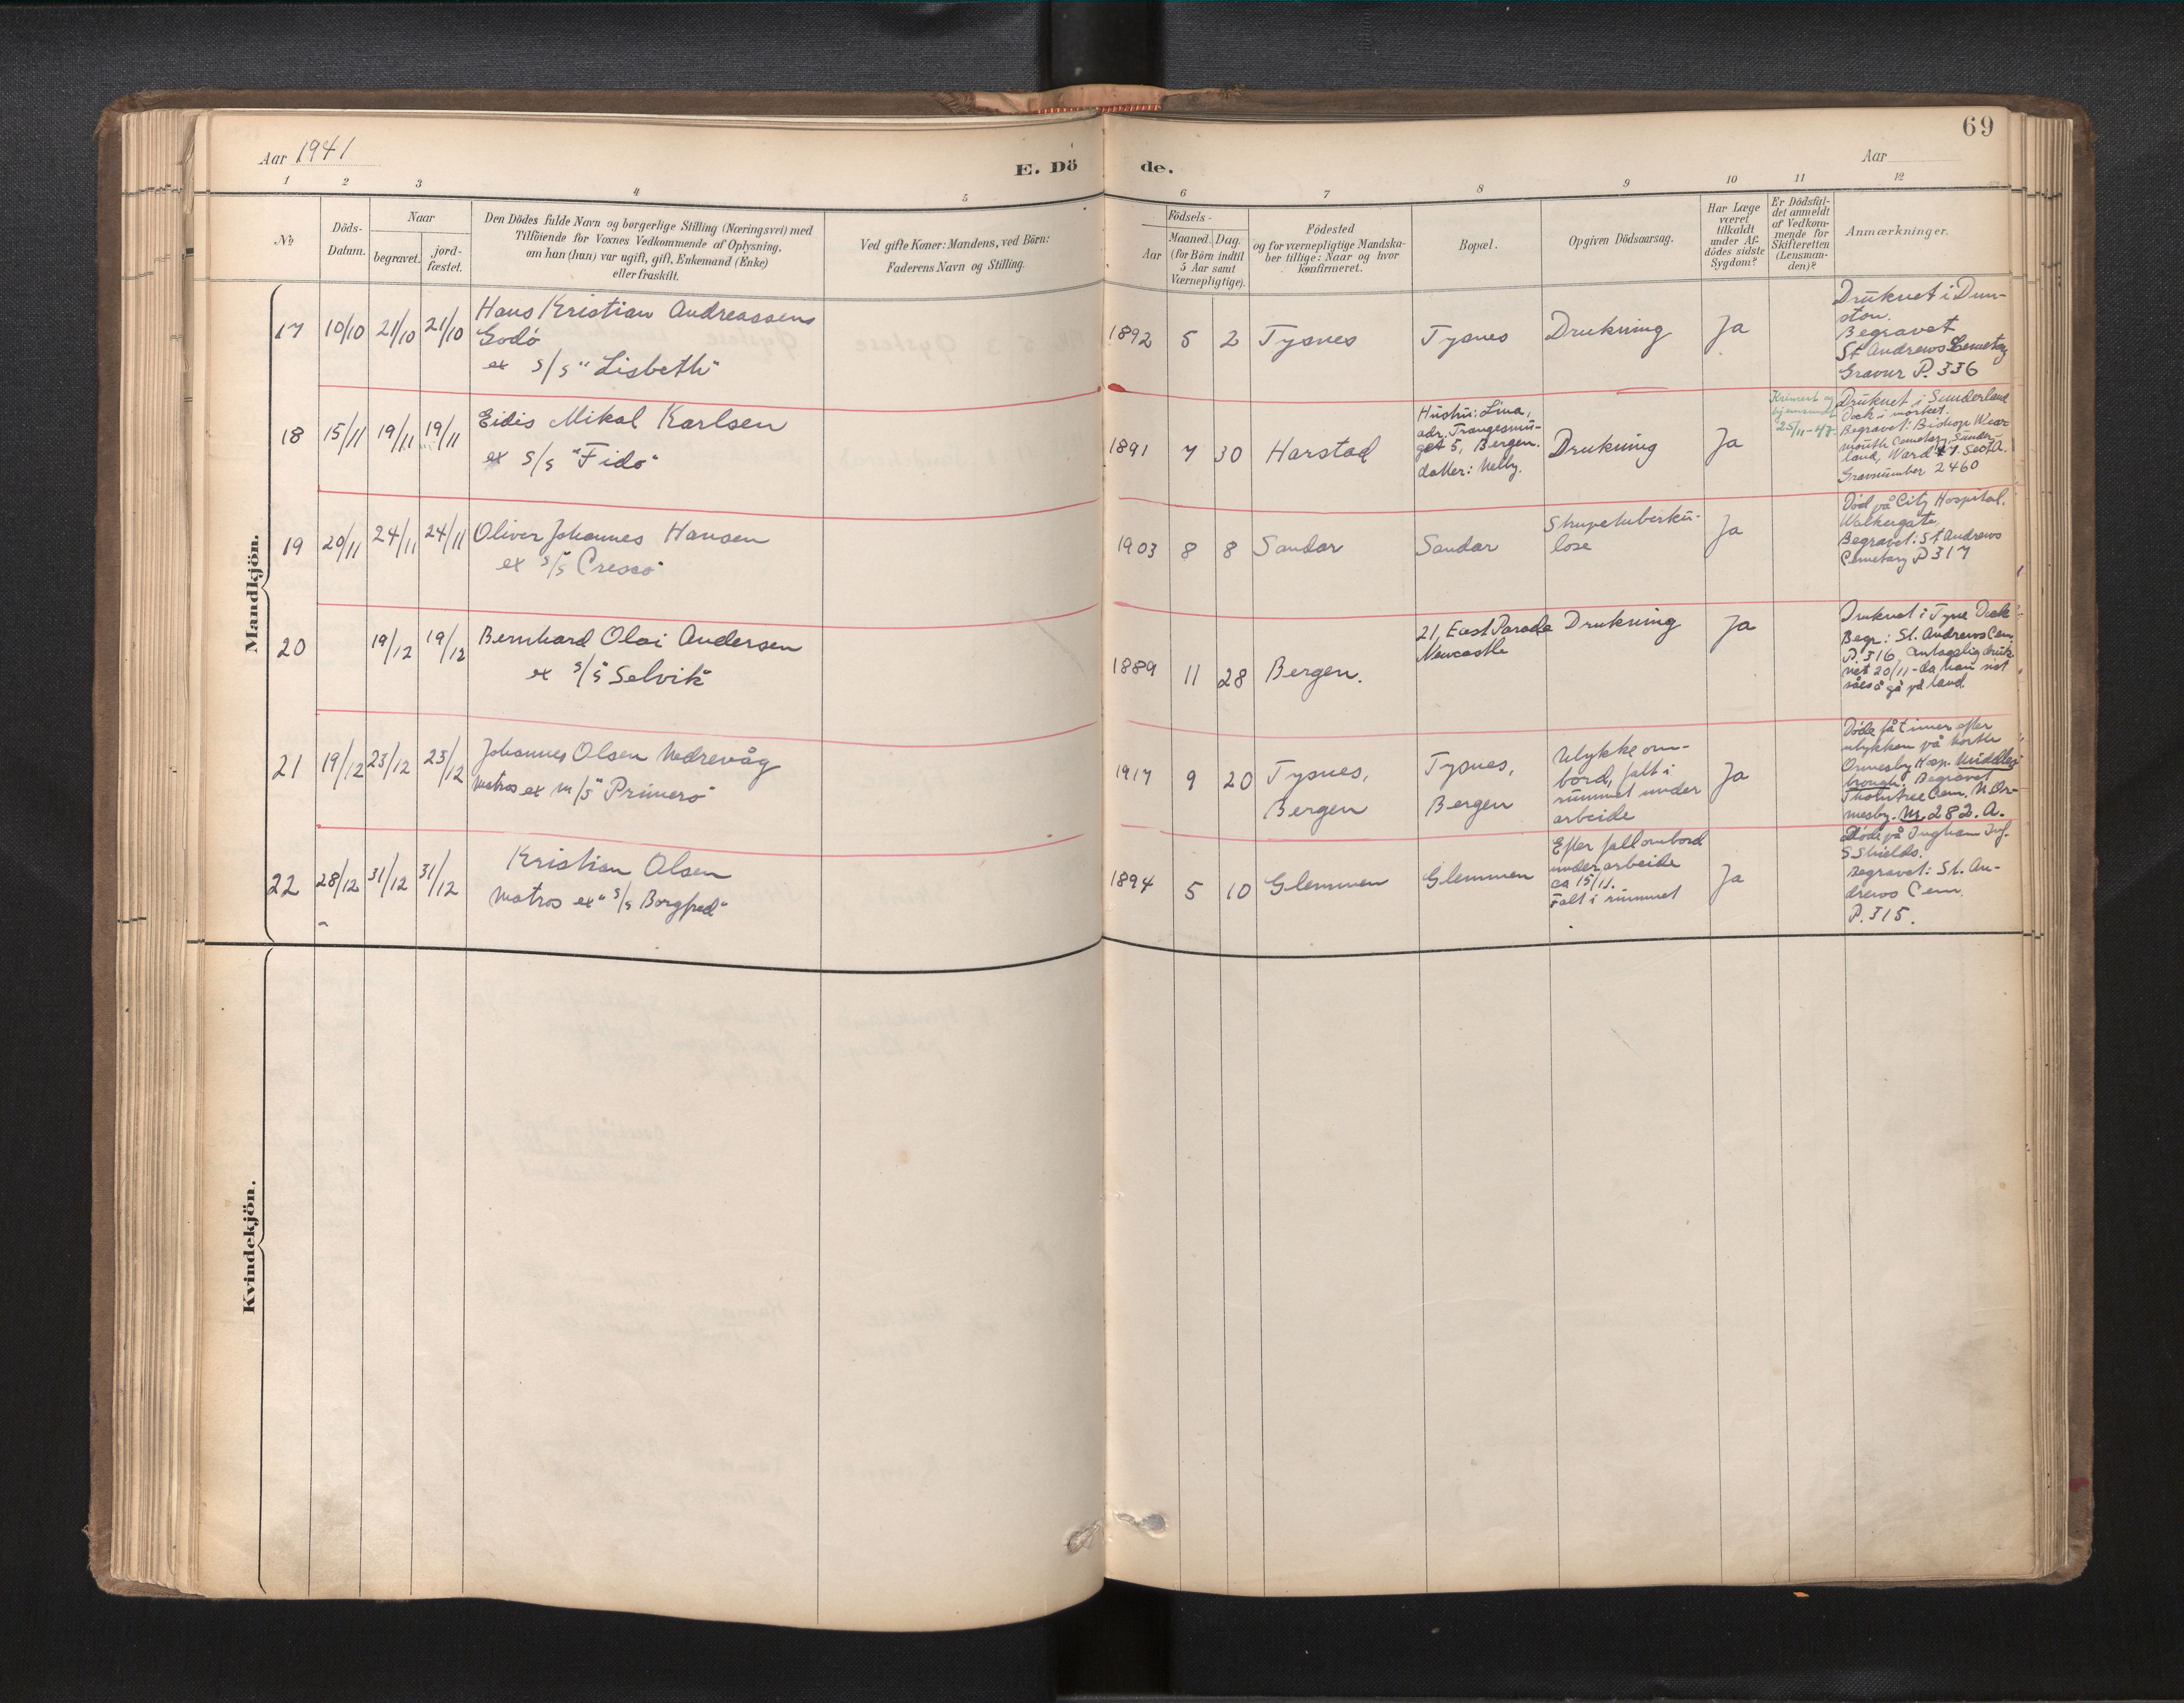 69
Aar 1941
E. Dö
de.
Aar
1 2 3 4 5 6 7 8 9 10 11 12
No
Döds-
Datum.
Naar
begravet.
jord-
fæstet.
Den Dödes fulde Navn og borgerlige Stilling (Næringsvei) med
Tilföiende for Voxnes Vedkommende af Oplysning,
om han (hun) var ugift, gift, Enkemand (Enke)
eller fraskilt.
Ved gifte Koner: Mandens, ved Börn:
Faderens Navn og Stilling.
Födsels-
Aar
Maaned.
Dag.
(for Börn indtil
5 Aar samt
Værnepligtige).
Födested
og for værnepligtige Mandska-
ber tillige: Naar og hvor
Konfirmeret.
Bopæl.
Opgiven Dödsaarsag.
Har Læge
været
tilkaldt
under Af-
dödes sidste
Sygdom?
Er Dödsfal-
det anmeldt
af Vedkom-
mende for
Skifteretten
(Lensman-
den)?
Anmærkninger.
Mandkjön.
17 10/10 21/10 21/10
Hans Kristian Andreassen
Godö
ex S/S "Lisbeth"
1892 5 2 Tysnes
Tysnes
Drukning
Ja
Druknet i Dun-
ston.
Begravet
St Andrews Cemetery
Gravnr P. 336
18 15/11 19/11 19/11
Eidis Mikal Karlsen
ex S/S "Fido"
1891 7 30 Harstad
Hustru: Lina,
adr.
get 5, Bergen.
datter: Nelly.
Drukning
Ja
Kremert og
hjemsendt
25/11-47
Druknet i Sunderland
Dock i mørket.
Begravet: Bishop Wear
mouth Cemetery, Sunder-
land, Ward 17. Sect A.
Gravnummer 2460
19 20/11 24/11 24/11
Oliver Johannes Hansen
ex S/S "Cresco"
1903 8 8 Sandar
Sandar
Strupetuberku-
lose
Ja
Død på City Hospital.
Walkergate
Begravet: St Andrews
Cemetary P 317
20 19/12 19/12
Bernhard Olai Andersen
ex S/S "Selvik"
1889 11 28 Bergen.
21, East Parade
Newcastle
Drukning
Ja
Druknet i Tyne Dock
Begr: St. Andrews Cem.
P. 316, antagelig druk-
net 20/11 - da han sist
såes å gå på land.
21 19/12 23/12 23/12
Johannes Olsen Nedrevåg
Matros ex M/S "Primero"
1917 9 20 Tysnes,
Bergen
Tysnes,
Bergen
Ulykke om-
bord, falt i
rummet under
arbeide
Ja
Døde få timer efter
ulykken på North
Ormesby Hosp. Middles-
brough. Begravet
Thorntree Cem. N. Or-
mesby. Nr. 282. A.
22 28/12 31/12 31/12
Kristian Olsen
Matros ex "S/S Borgfred"
1894 5 10 Glemmen
Glemmen
Efter fall ombord
under arbeide
ca 15/11.
Falt i rummet
Ja
Døde på Ingham Inf.
S Shields.
Begravet: St. An-
drews Cem.
P. 315.
Kvindekjön.